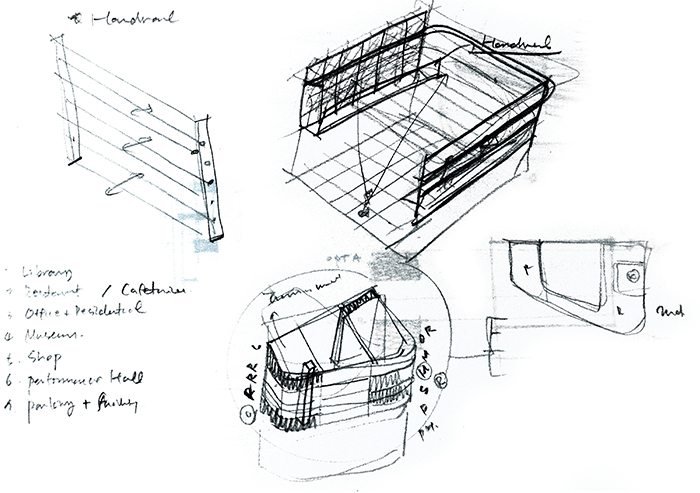 Handrail
Handrail
1. Library
2 Restaurant / Cafeteria
3 Office + Residential
4 Museum.
5. Shop
6 performance Hall
parking +
R
R
2nd
C
R
R
R
C
OR
M
M
S
R
P
PH.